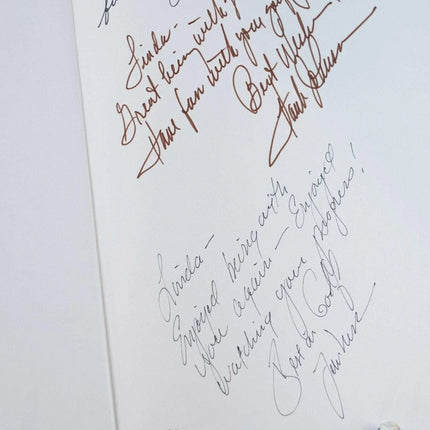 Linda -
Great being with
Have fun with your
Best Wishes
Hank Johnson
Linda -
Enjoyed being with
you again - Enjoyed
watching your progress!
Best in Golf